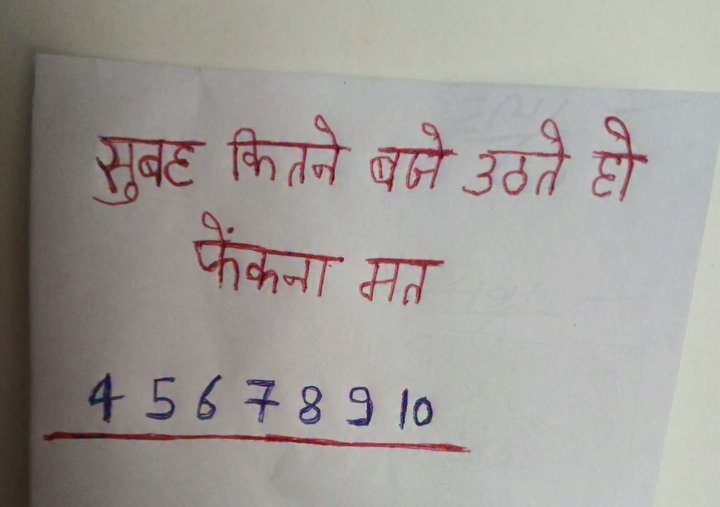 सुबह कितने बजे उठते हो
फेंकना मत
4 5 6 7 8 9 10